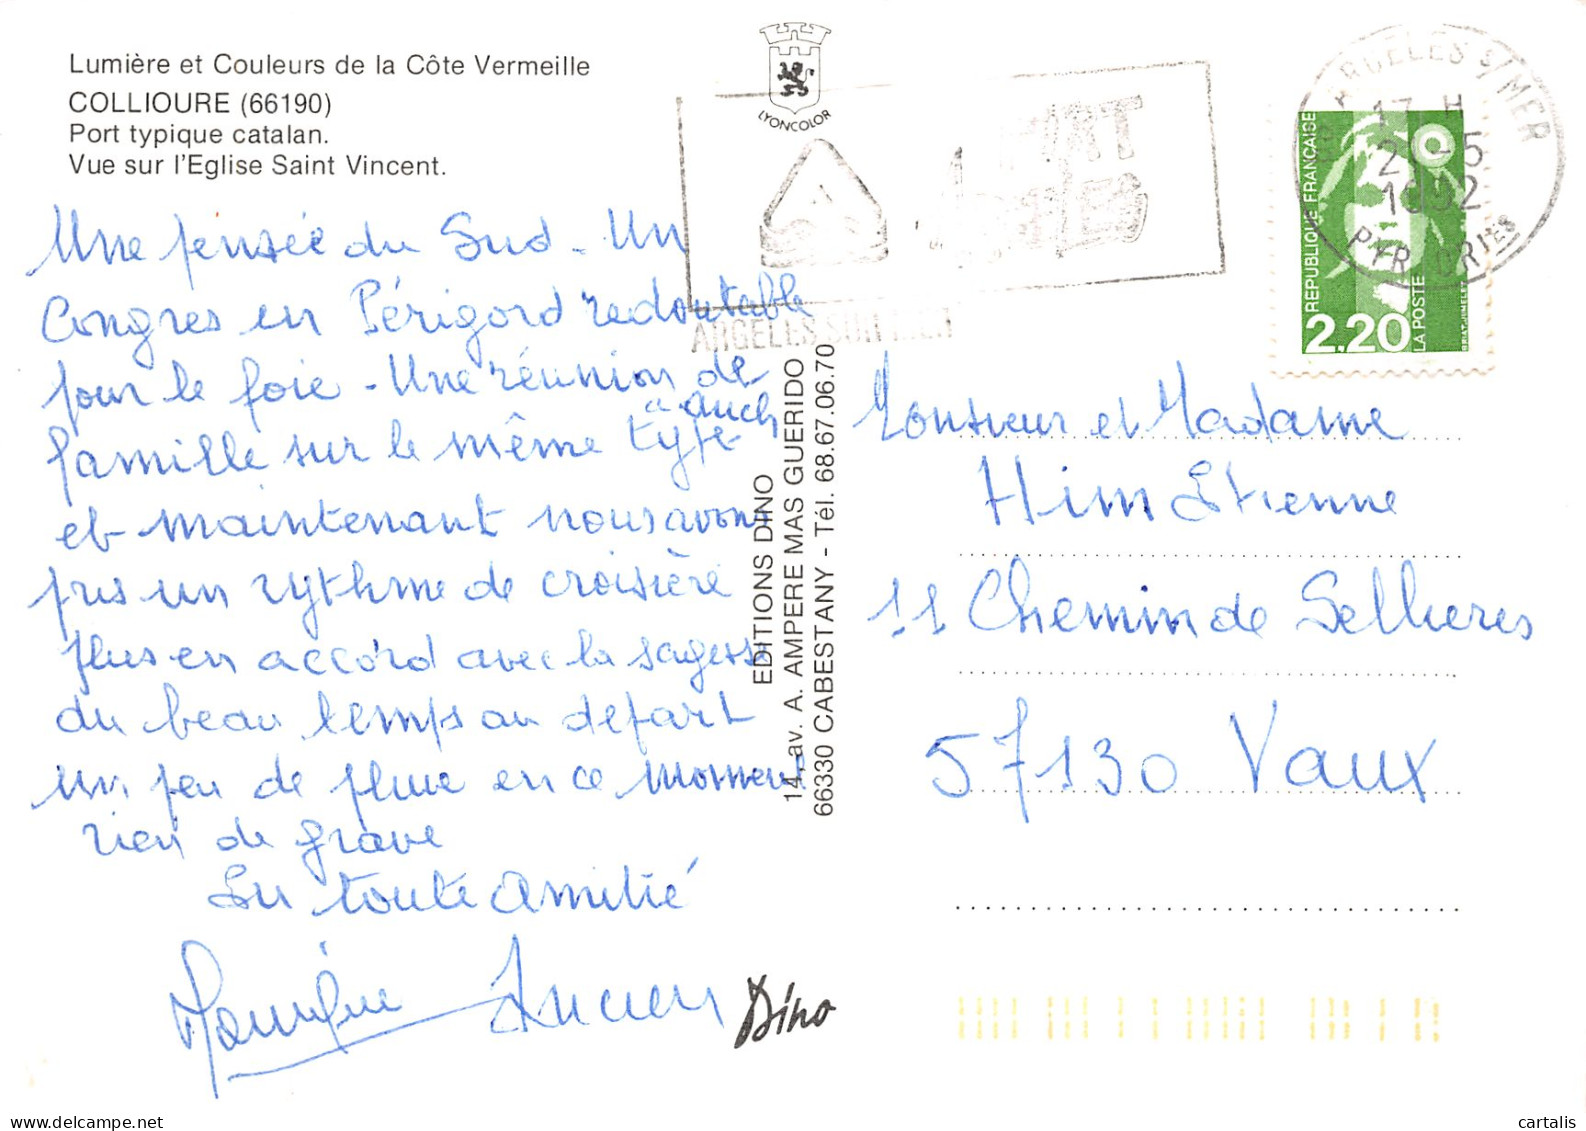 Lumière et Couleurs de la Côte Vermeille
COLLIOURE (66190)
Port typique catalan.
Vue sur l'Eglise Saint Vincent.
Une pensée du Sud - Un
Congres en Périgord redoutable
pour le foie - Une réunion de
famille sur le même type à Auch
et maintenant nous avons
pris un rythme de croisière
plus en accord avec la sagesse
du beau temps au depart
un peu de pluie en ce moment
rien de grave
En toute Amitié
Lucien
LYONCOLOR
ARGELES SUR MER
EDITIONS DINO
14, av. A. AMPERE MAS GUERIDO
66330 CABESTANY - Tél. 68.67.06.70
Dino
ARGELES S/MER
17 H
2 -5
1992
PYR. ORIES
REPUBLIQUE FRANÇAISE
2,20
LA POSTE
BRIAT-JUMELET
Monsieur et Madame
Him Etienne
11 Chemin de Sellieres
57130 Vaux
cartalis